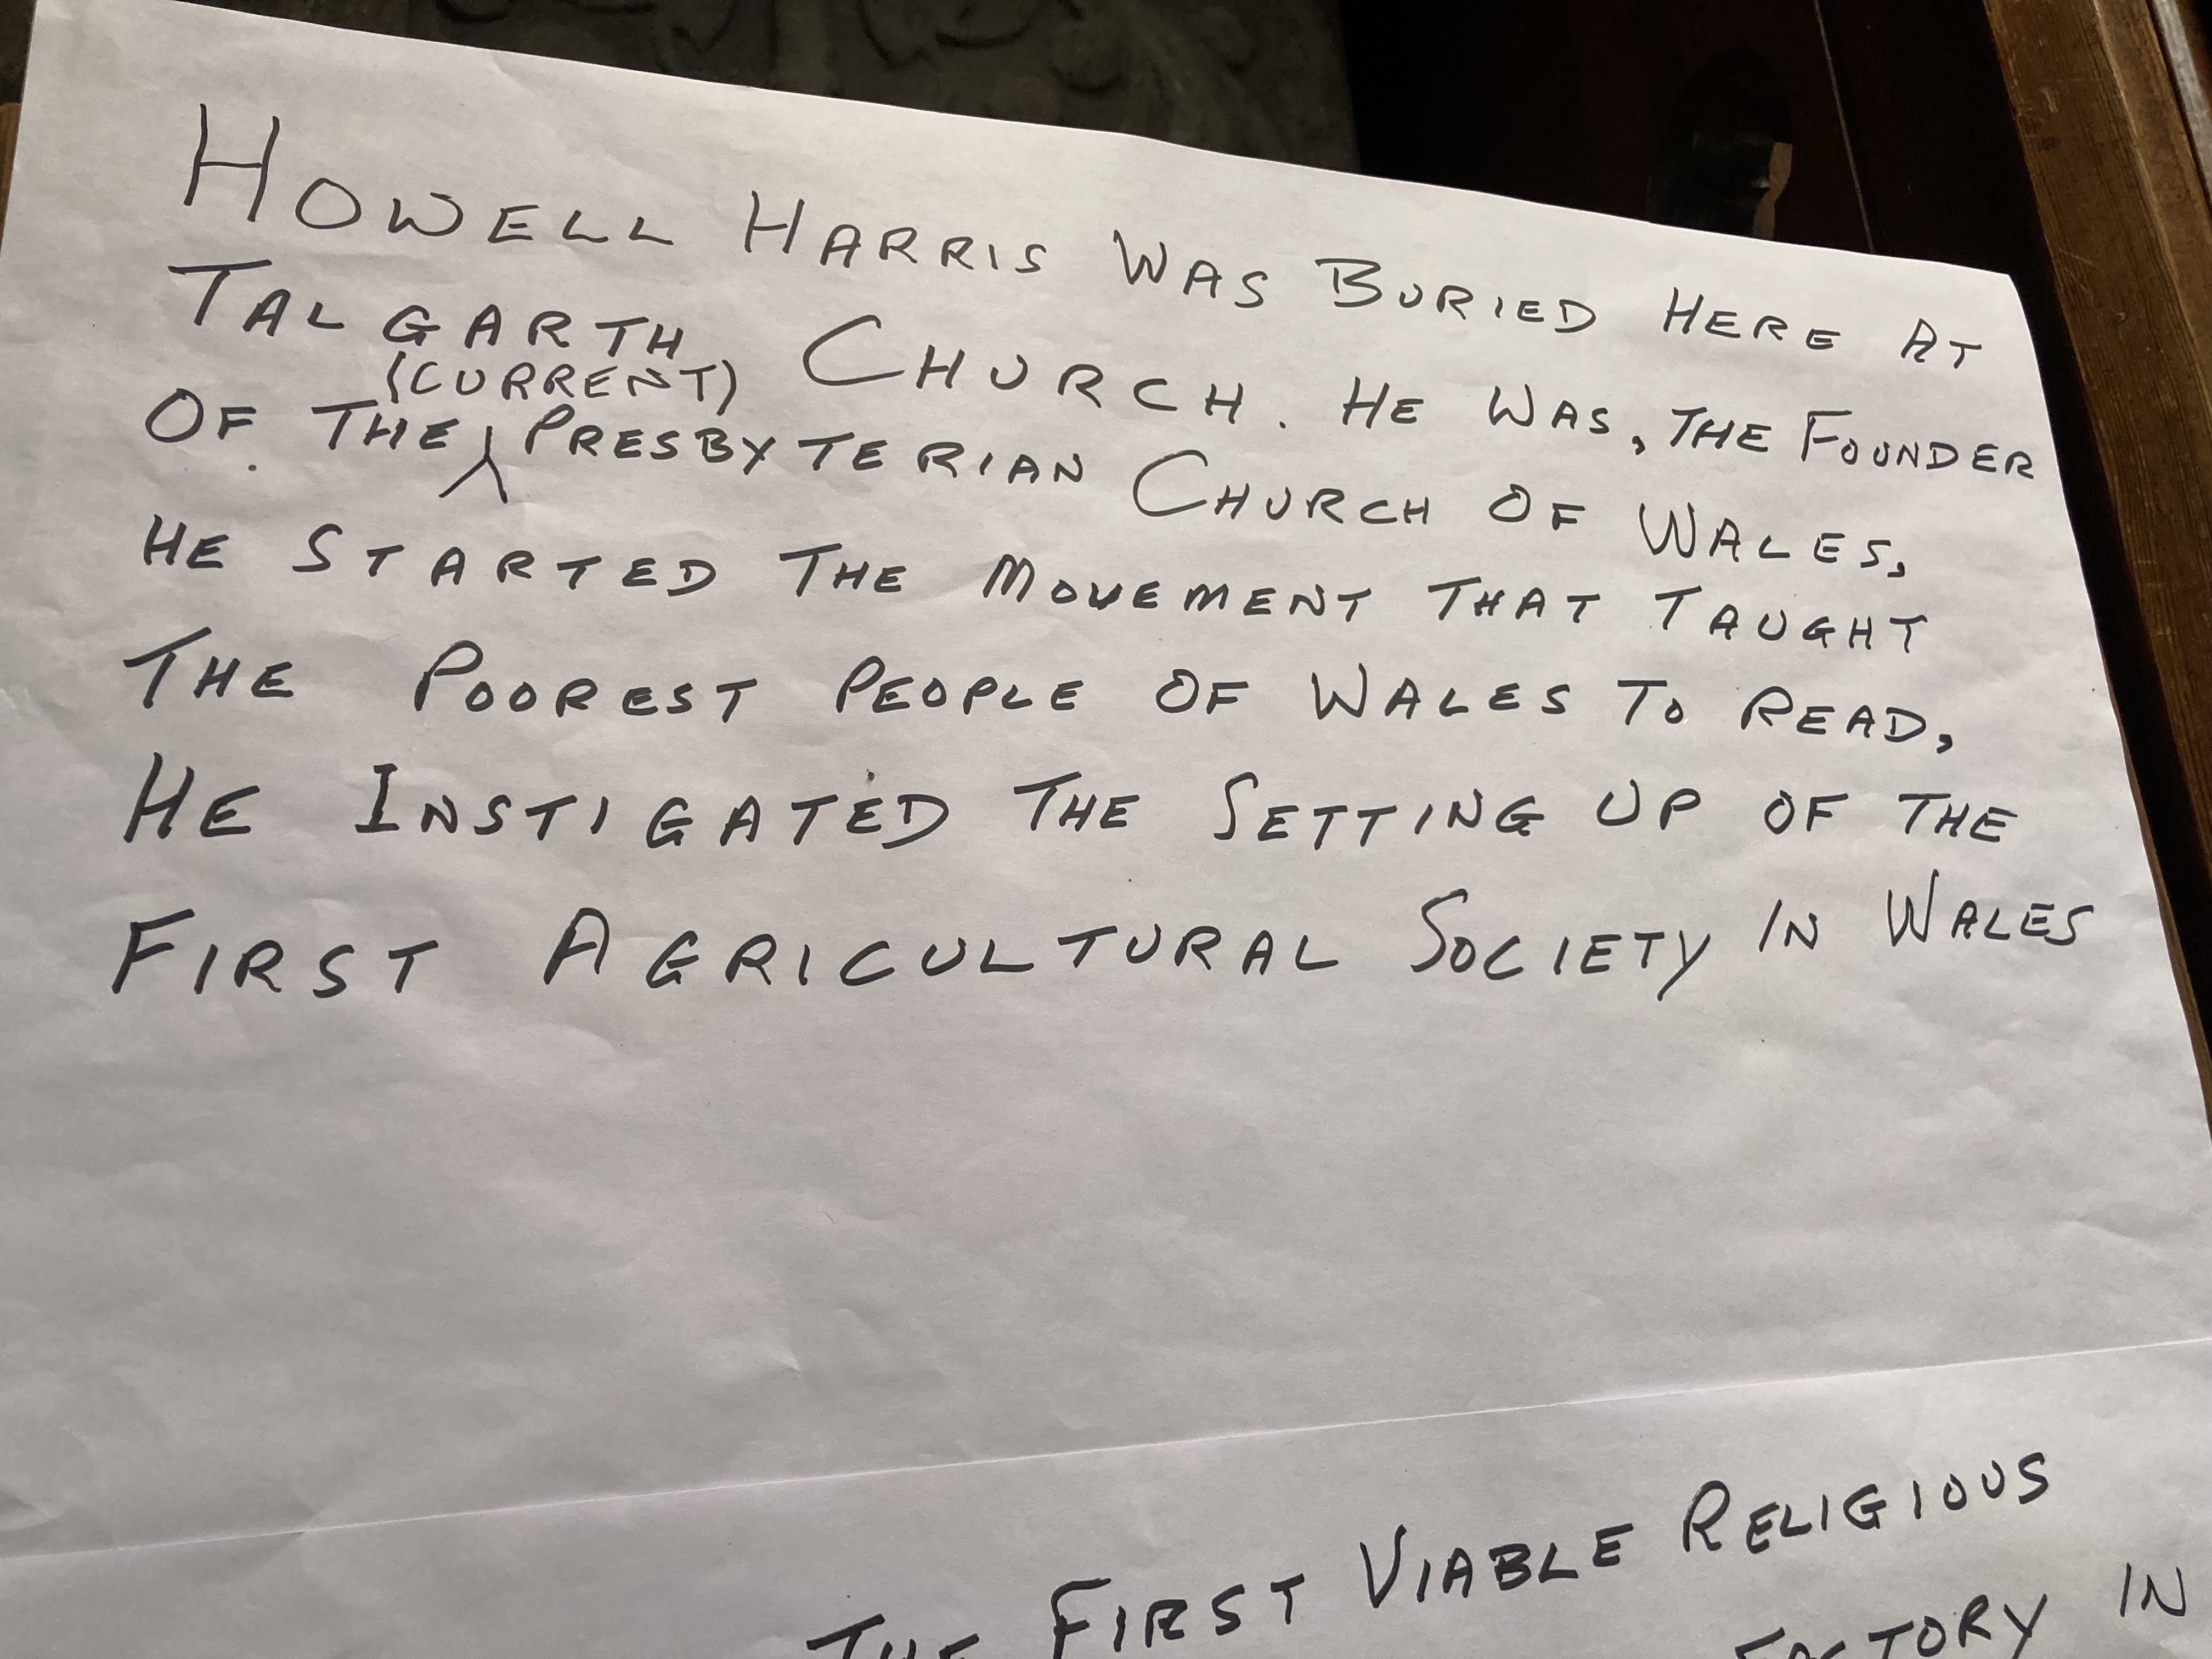 HOWELL HARRIS WAS BURIED HERE AT
TALGARTH CHURCH. HE WAS, THE FOUNDER
(CURRENT)
OF THE PRESBYTERIAN CHURCH OF WALES,
HE STARTED THE MOVEMENT THAT TAUGHT
THE POOREST PEOPLE OF WALES TO READ,
HE INSTIGATED THE SETTING UP OF THE
FIRST AGRICULTURAL SOCIETY IN WALES
THE FIRST VIABLE RELIGIOUS
FACTORY IN